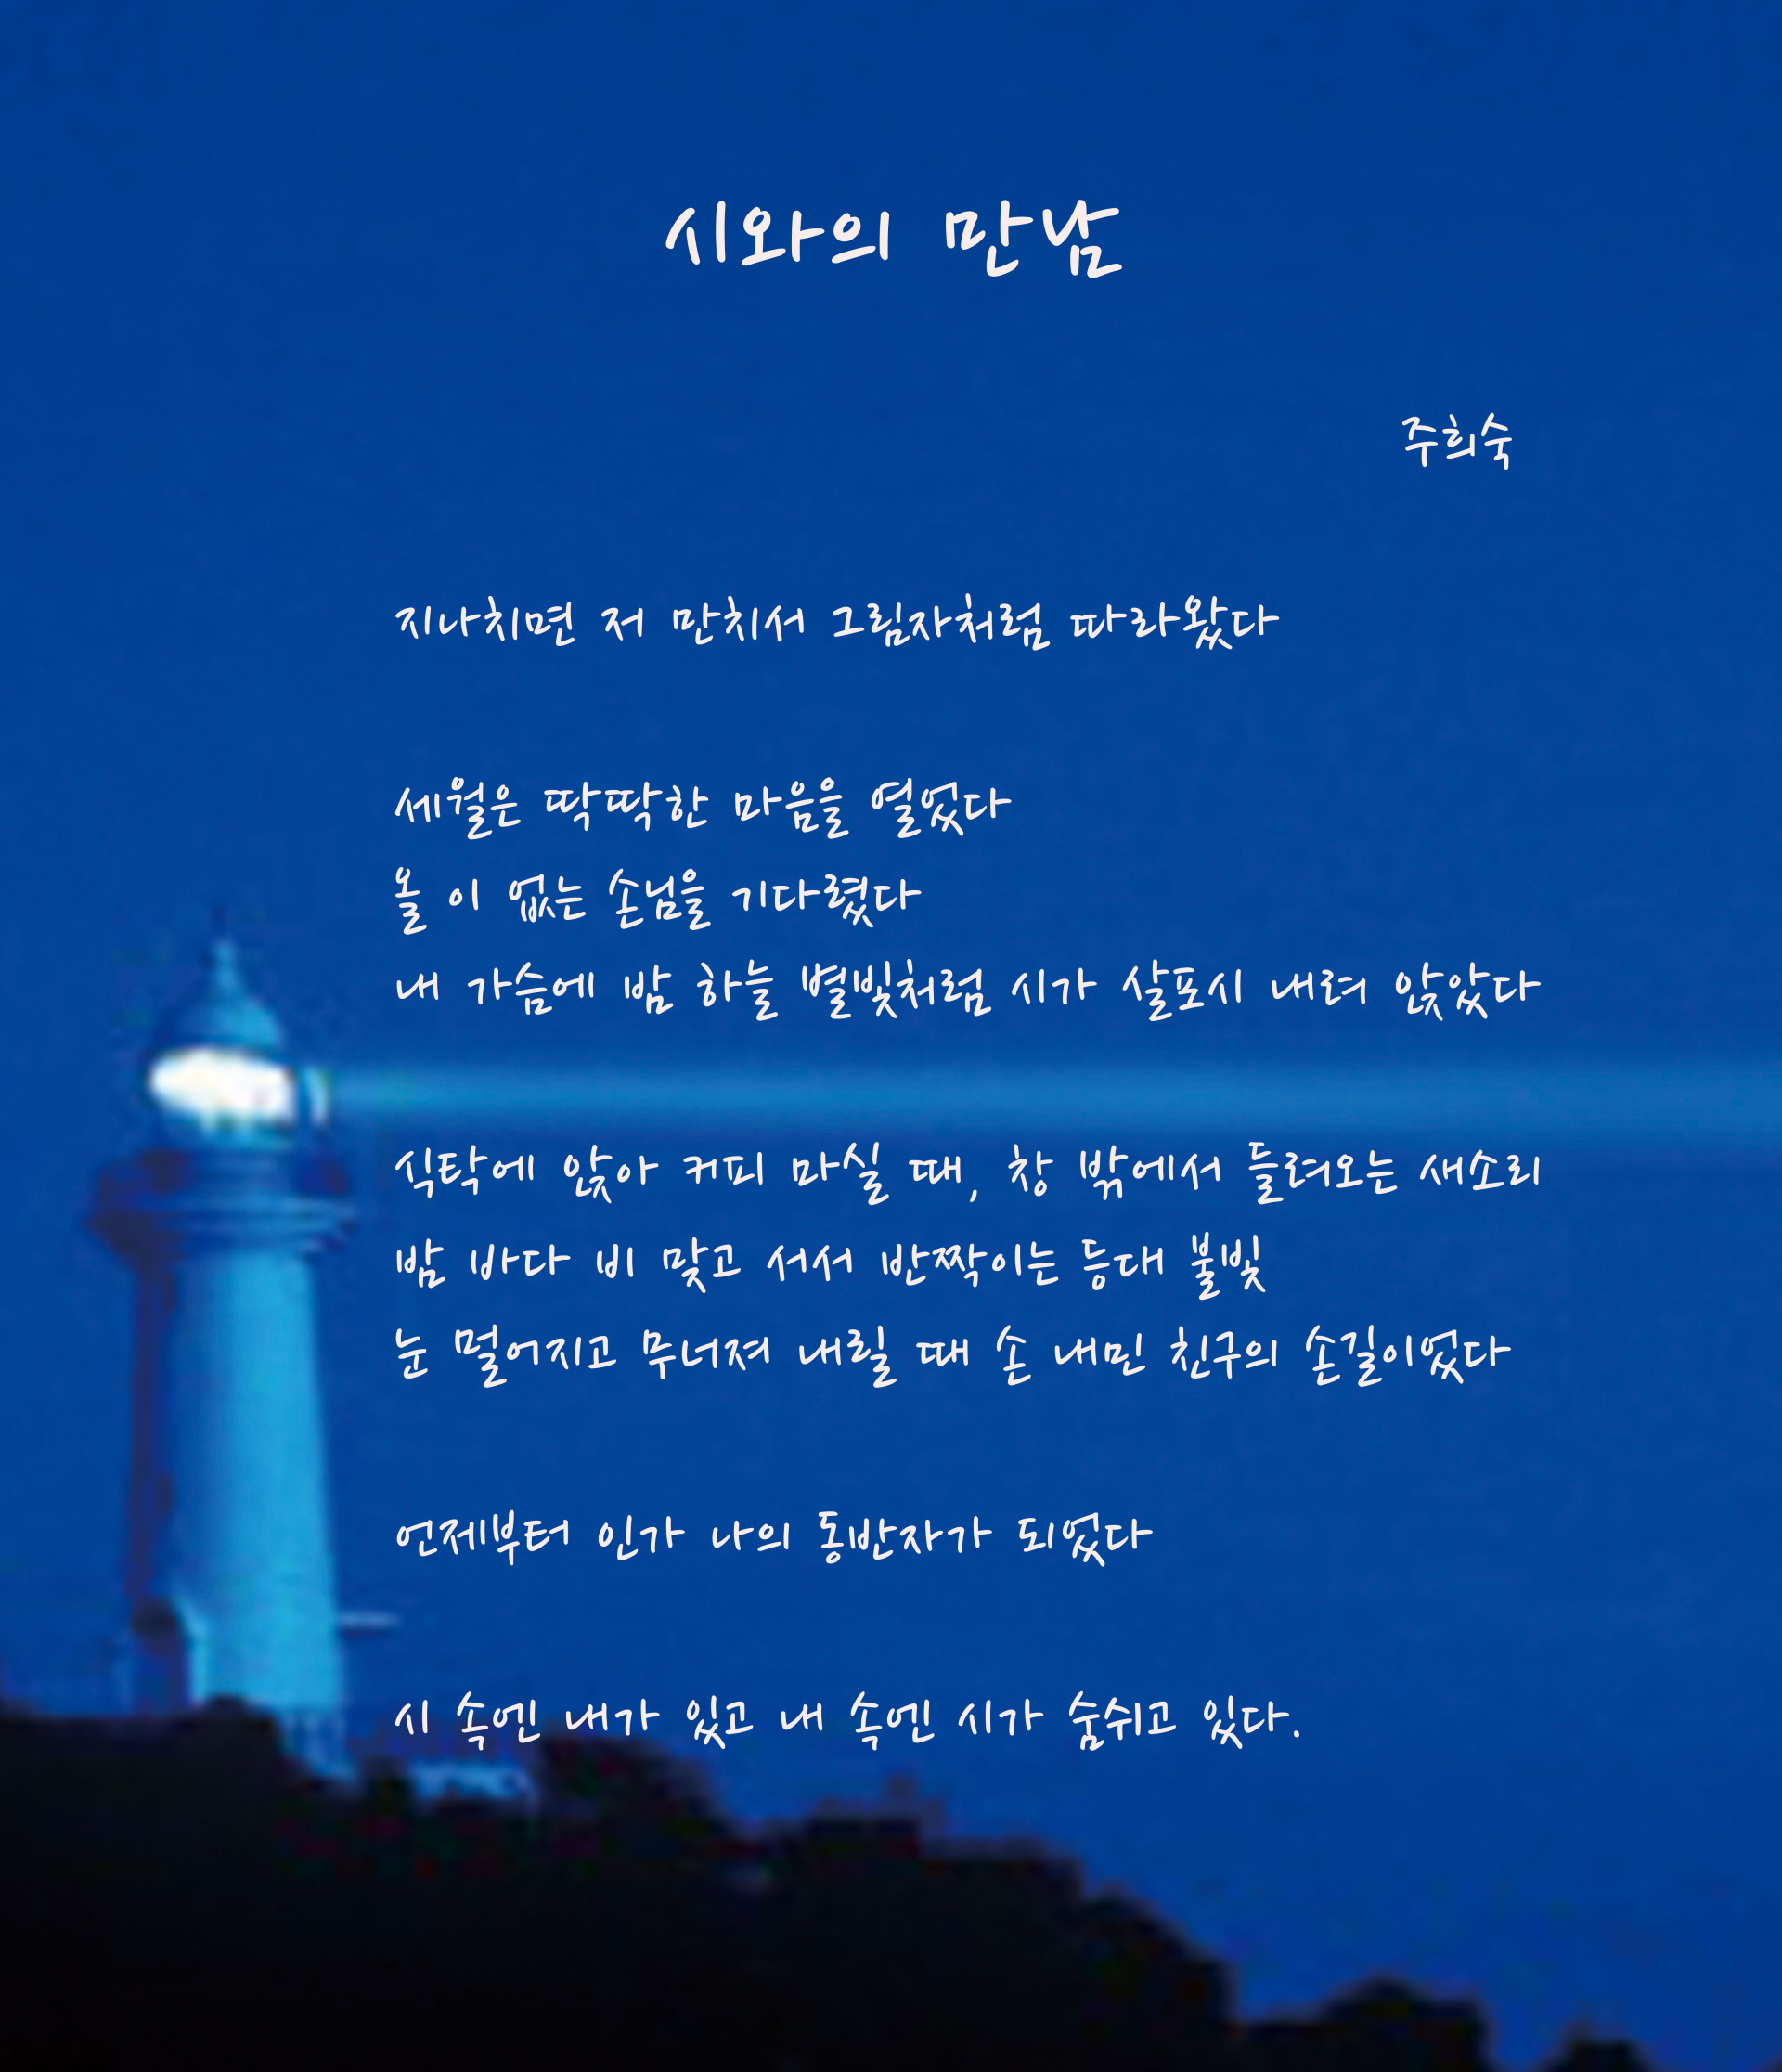 시와의 만남
주희숙
지나치면 저 만치서 그림자처럼 따라왔다
세월은 딱딱한 마음을 열었다
올 이 없는 손님을 기다렸다
내 가슴에 밤 하늘 별빛처럼 시가 살포시 내려 앉았다
식탁에 앉아 커피 마실 때, 창 밖에서 들려오는 새소리
밤 바다 비 맞고 서서 반짝이는 등대 불빛
눈 멀어지고 무너져 내릴 때 손 내민 친구의 손길이었다
언제부터 인가 나의 동반자가 되었다
시 속엔 내가 있고 내 속엔 시가 숨쉬고 있다.